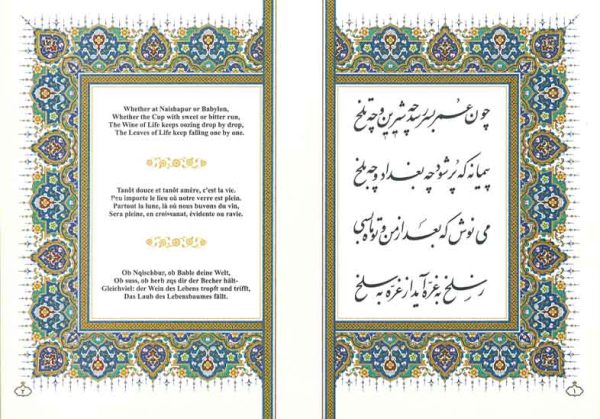 Whether at Naishapur or Babylon,
Whether the Cup with sweet or bitter run,
The Wine of Life keeps oozing drop by drop,
The Leaves of Life keep falling one by one.
Tanôt douce et tanôt amère, c'est la vie.
Peu importe le lieu où notre verre est plein.
Partout la lune, là où nous buvons du vin,
Sera pleine, en croissanat, évidente ou ravie.
Ob Nqischbur, ob Bable deine Welt,
Ob suss, ob herb zqs dir der Becher hält-
Gleichviel: der Wein des Lebens tropft und trifft,
Das Laub des Lebensbaumes fällt.
۲
چون عمر بسر رسد چه شیرین و چه تلخ
پیمانه که پر شود چه بغداد و چه بلخ
می نوش که بعد از من و تو ماه بسی
از سلخ به غره آید از غره به سلخ
۱